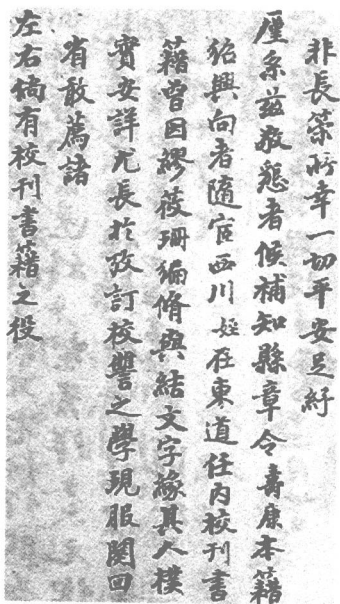 非長策所幸一切平安足紓
厪系茲敬懇者候補知縣章令壽康本籍
紹興向者隨宦西川姪在東道任内校刊書
籍曾因繆莜珊編脩與結文字緣其人樸
實安詳尤長於攷訂校讐之學現服闋回
省敢薦諸
左右倘有校刊書籍之役